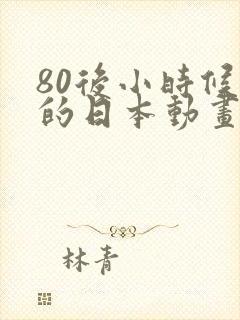 80後小時候
的日本動畫
林青